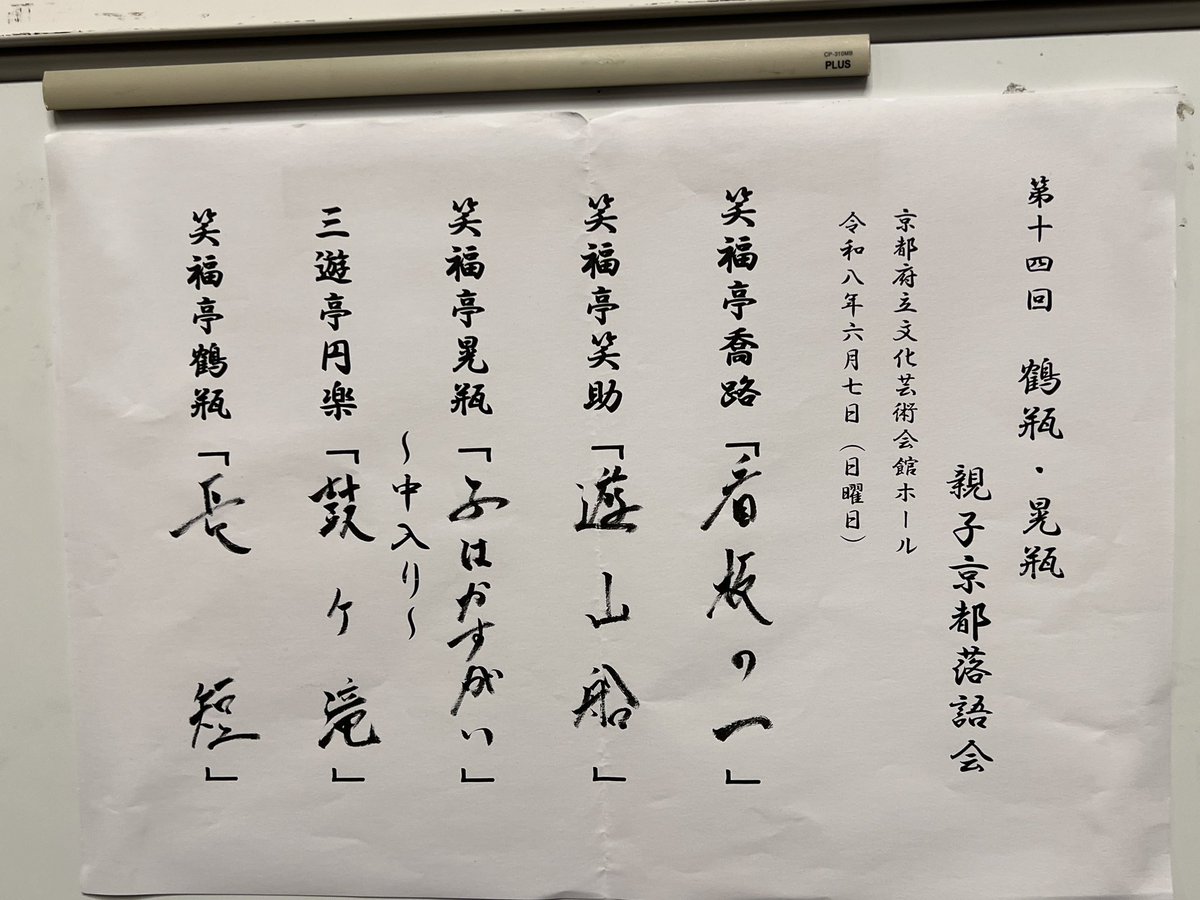 CP-310MB
PLUS
第十四回　鶴瓶・晃瓶
親子京都落語会
京都府立文化芸術会館ホール
令和八年六月七日（日曜日）
笑福亭喬路「看板の一」
笑福亭笑助「遊山船」
笑福亭晃瓶「子はかすがい」
〜中入り〜
三遊亭円楽「鼓ヶ滝」
笑福亭鶴瓶「長短」